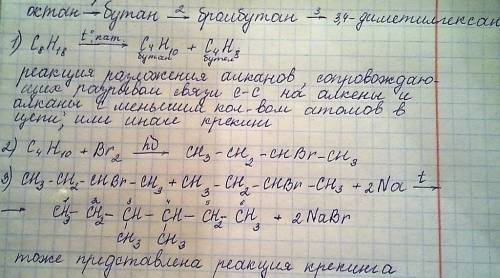 остан 1→ бутан 2→ бромбутан 3→ 3,4-диметилгексан
1) C₈H₁₈ t°, кат. → C₄H₁₀ + C₄H₈
бутан бутен
реакция разложения алканов, сопровождаю-
щихся разрывом связи С-С на алкены и
алканы с меньшим кол-вом атомов в
цепи, или иначе крекинг
2) C₄H₁₀ + Br₂ hυ → CH₃-CH₂-CHBr-CH₃
3) CH₃-CH₂-CHBr-CH₃ + CH₃-CH₂-CHBr-CH₃ + 2Na t →
1 2 3 4 5 6
→ CH₃-CH₂-CH-CH-CH₂-CH₃ + 2NaBr
CH₃ CH₃
тоже представлена реакция крекинга